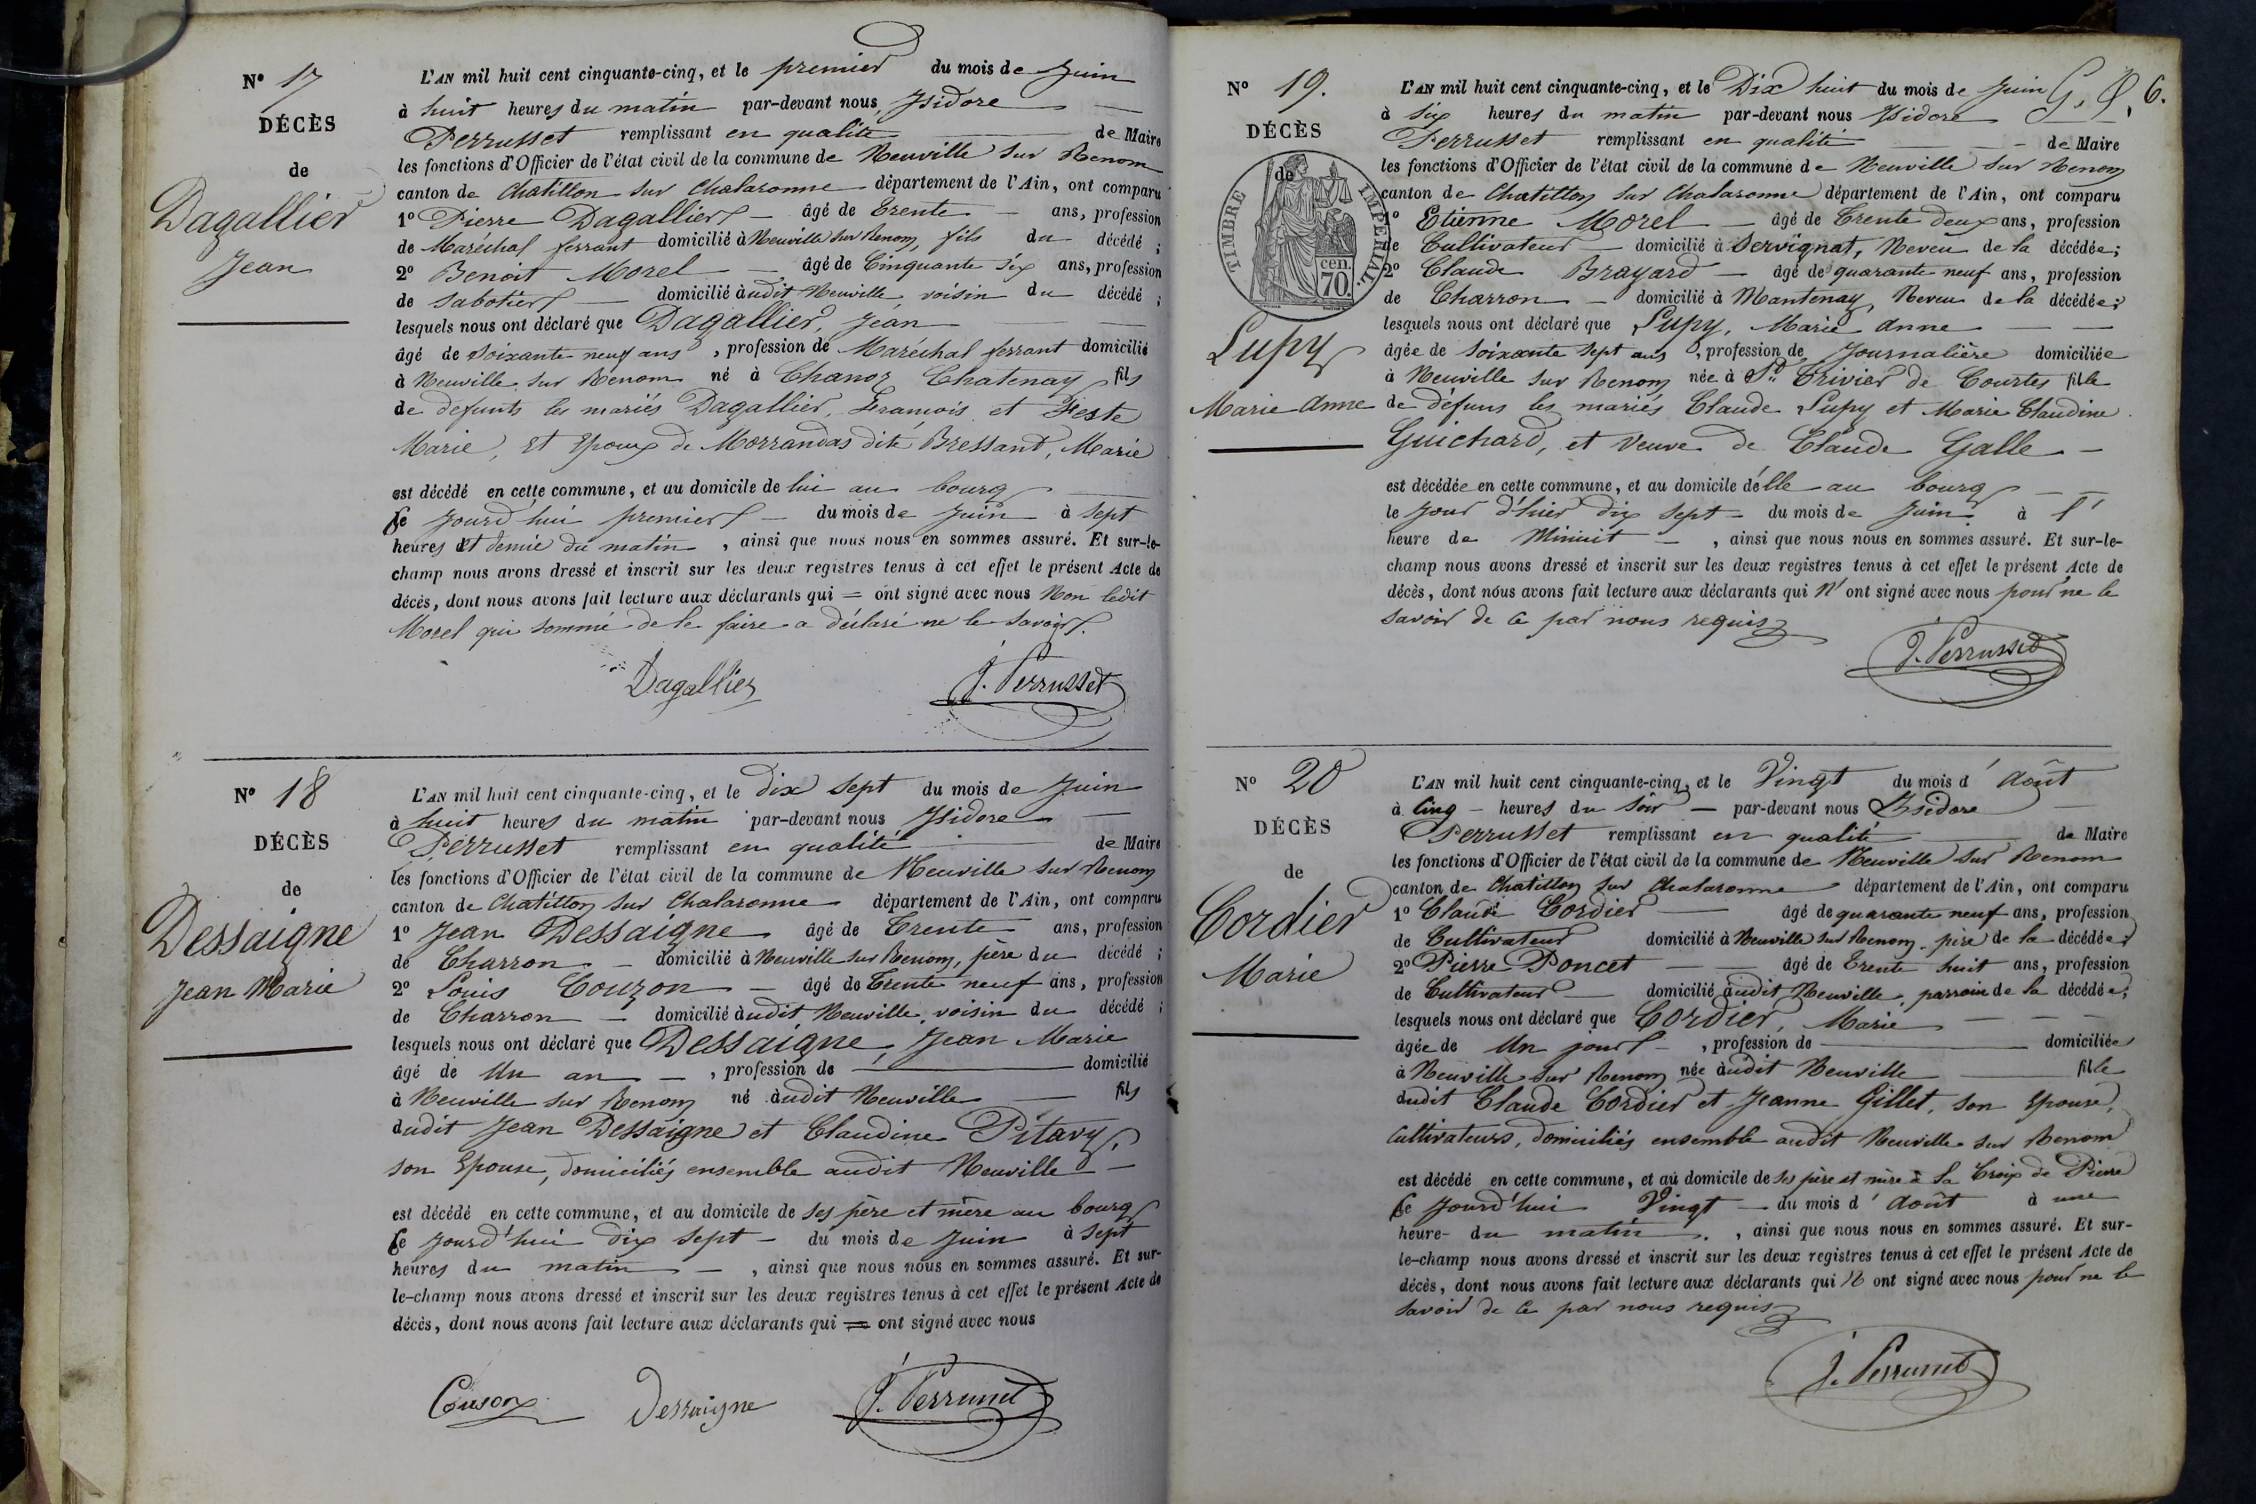 N° 17
DÉCÈS
de
Dagallier
Jean
L'AN mil huit cent cinquante-cinq, et le premier du mois de Juin
à huit heures du matin par-devant nous Isidore
Perrusset remplissant en qualité de Maire
les fonctions d'Officier de l'état civil de la commune de Neuville sur Renom
canton de Chatillon sur Chalaronne département de l'Ain, ont comparu
1° Pierre Dagallier âgé de Trente ans, profession
de Maréchal ferrant domicilié à Neuville sur Renom, fils du décédé ;
2° Benoit Morel âgé de Cinquante six ans, profession
de sabotier domicilié audit Neuville, voisin du décédé ;
lesquels nous ont déclaré que Dagallier, Jean
âgé de soixante neuf ans, profession de Maréchal ferrant domicilié
à Neuville sur Renom né à Chanoz Chatenay fils
de defunts les mariés Dagallier, Francois et Feste
Marie, et Epoux de Morrandas dite Bressant, Marie
est décédé en cette commune, et au domicile de lui au bourg
le jourd'hui premier du mois de Juin à sept
heures et demie du matin, ainsi que nous nous en sommes assuré. Et sur-le-
champ nous avons dressé et inscrit sur les deux registres tenus à cet effet le présent Acte de
décès, dont nous avons fait lecture aux déclarants qui = ont signé avec nous Non ledit
Morel qui sommé de le faire a déclaré ne le savoir.
Dagallier J. Perrusset
N° 18
DÉCÈS
de
Dessaigne
Jean Marie
L'AN mil huit cent cinquante-cinq, et le dix sept du mois de Juin
à huit heures du matin par-devant nous Isidore
Perrusset remplissant en qualité de Maire
les fonctions d'Officier de l'état civil de la commune de Neuville sur Renom
canton de Chatillon sur Chalaronne département de l'Ain, ont comparu
1° Jean Dessaigne âgé de Trente ans, profession
de Charron domicilié à Neuville sur Renom, père du décédé ;
2° Louis Couzon âgé de Trente neuf ans, profession
de Charron domicilié audit Neuville, voisin du décédé ;
lesquels nous ont déclaré que Dessaigne, Jean Marie
âgé de Un an, profession de domicilié
à Neuville sur Renom né audit Neuville fils
dudit Jean Dessaigne et Claudine Pitavy,
son Epouse, domiciliés ensemble audit Neuville
est décédé en cette commune, et au domicile de ses père et mère au bourg
le jourd'hui dix sept du mois de Juin à sept
heures du matin, ainsi que nous nous en sommes assuré. Et sur-
le-champ nous avons dressé et inscrit sur les deux registres tenus à cet effet le présent Acte de
décès, dont nous avons fait lecture aux déclarants qui = ont signé avec nous
Couson Dessaigne J. Perrusset
G. P. 6.
N° 19.
DÉCÈS
de
TIMBRE IMPERIAL.
cen.
70.
Lupy
Marie Anne
L'AN mil huit cent cinquante-cinq, et le Dix huit du mois de Juin
à six heures du matin par-devant nous Isidore
Perrusset remplissant en qualité de Maire
les fonctions d'Officier de l'état civil de la commune de Neuville sur Renom
canton de Chatillon sur Chalaronne département de l'Ain, ont comparu
1° Etienne Morel âgé de Trente deux ans, profession
de Cultivateur domicilié à Servignat, Neveu de la décédée ;
2° Claude Brayard âgé de quarante neuf ans, profession
de Charron domicilié à Mantenay, Neveu de la décédée ;
lesquels nous ont déclaré que Lupy, Marie Anne
âgée de soixante sept ans, profession de Journalière domiciliée
à Neuville sur Renom née à St Trivier de Courtes fille
de défuns les mariés Claude Lupy et Marie Claudine
Guichard, et Veuve de Claude Galle
est décédée en cette commune, et au domicile d'elle au bourg
le jour d'hier dix sept du mois de Juin à l'
heure de Minuit, ainsi que nous nous en sommes assuré. Et sur-le-
champ nous avons dressé et inscrit sur les deux registres tenus à cet effet le présent Acte de
décès, dont nous avons fait lecture aux déclarants qui N'ont signé avec nous pour ne le
savoir de ce par nous requis
J. Perrusset
N° 20
DÉCÈS
de
Cordier
Marie
L'AN mil huit cent cinquante-cinq, et le Vingt du mois d'Août
à Cinq heures du soir par-devant nous Isidore
Perrusset remplissant en qualité de Maire
les fonctions d'Officier de l'état civil de la commune de Neuville sur Renom
canton de Chatillon sur Chalaronne département de l'Ain, ont comparu
1° Claude Cordier âgé de quarante neuf ans, profession
de Cultivateur domicilié à Neuville sur Renom, père de la décédée ;
2° Pierre Poncet âgé de Trente huit ans, profession
de Cultivateur domicilié audit Neuville, parrain de la décédée ;
lesquels nous ont déclaré que Cordier, Marie
âgée de Un jour, profession de domiciliée
à Neuville sur Renom née audit Neuville fille
dudit Claude Cordier et Jeanne Gillet, son Epouse,
Cultivateurs, domiciliés ensemble audit Neuville sur Renom
est décédé en cette commune, et au domicile de ses père et mère à la Croix de Pierre
le jourd'hui Vingt du mois d'Août à une
heure du matin, ainsi que nous nous en sommes assuré. Et sur-
le-champ nous avons dressé et inscrit sur les deux registres tenus à cet effet le présent Acte de
décès, dont nous avons fait lecture aux déclarants qui N'ont signé avec nous pour ne le
savoir de ce par nous requis
J. Perrusset